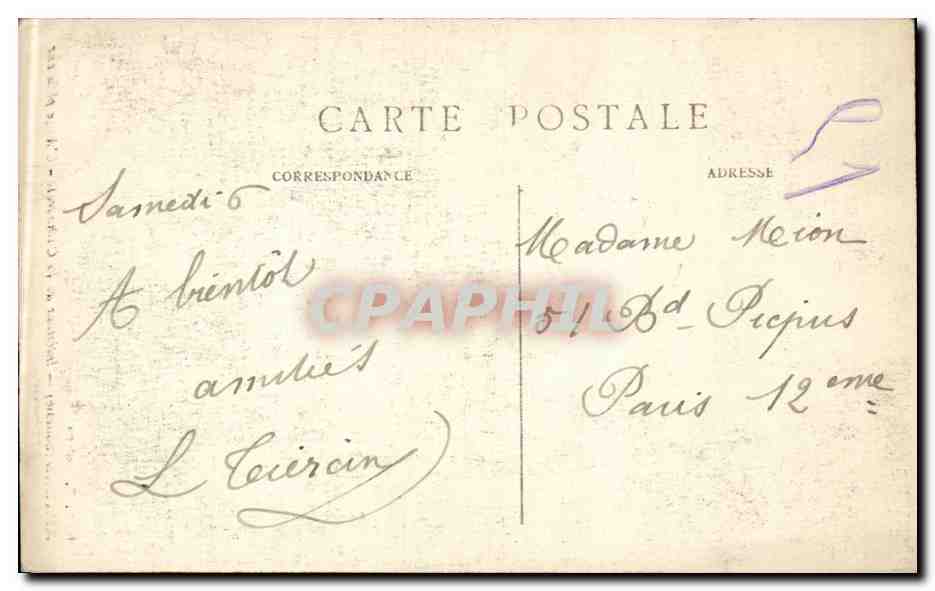 CARTE POSTALE
CORRESPONDANCE
ADRESSE
Samedi 6
A bientôt
amitiés
L
Madame Mion
51 Bd Picpus
Paris 12eme
CPAPHIL